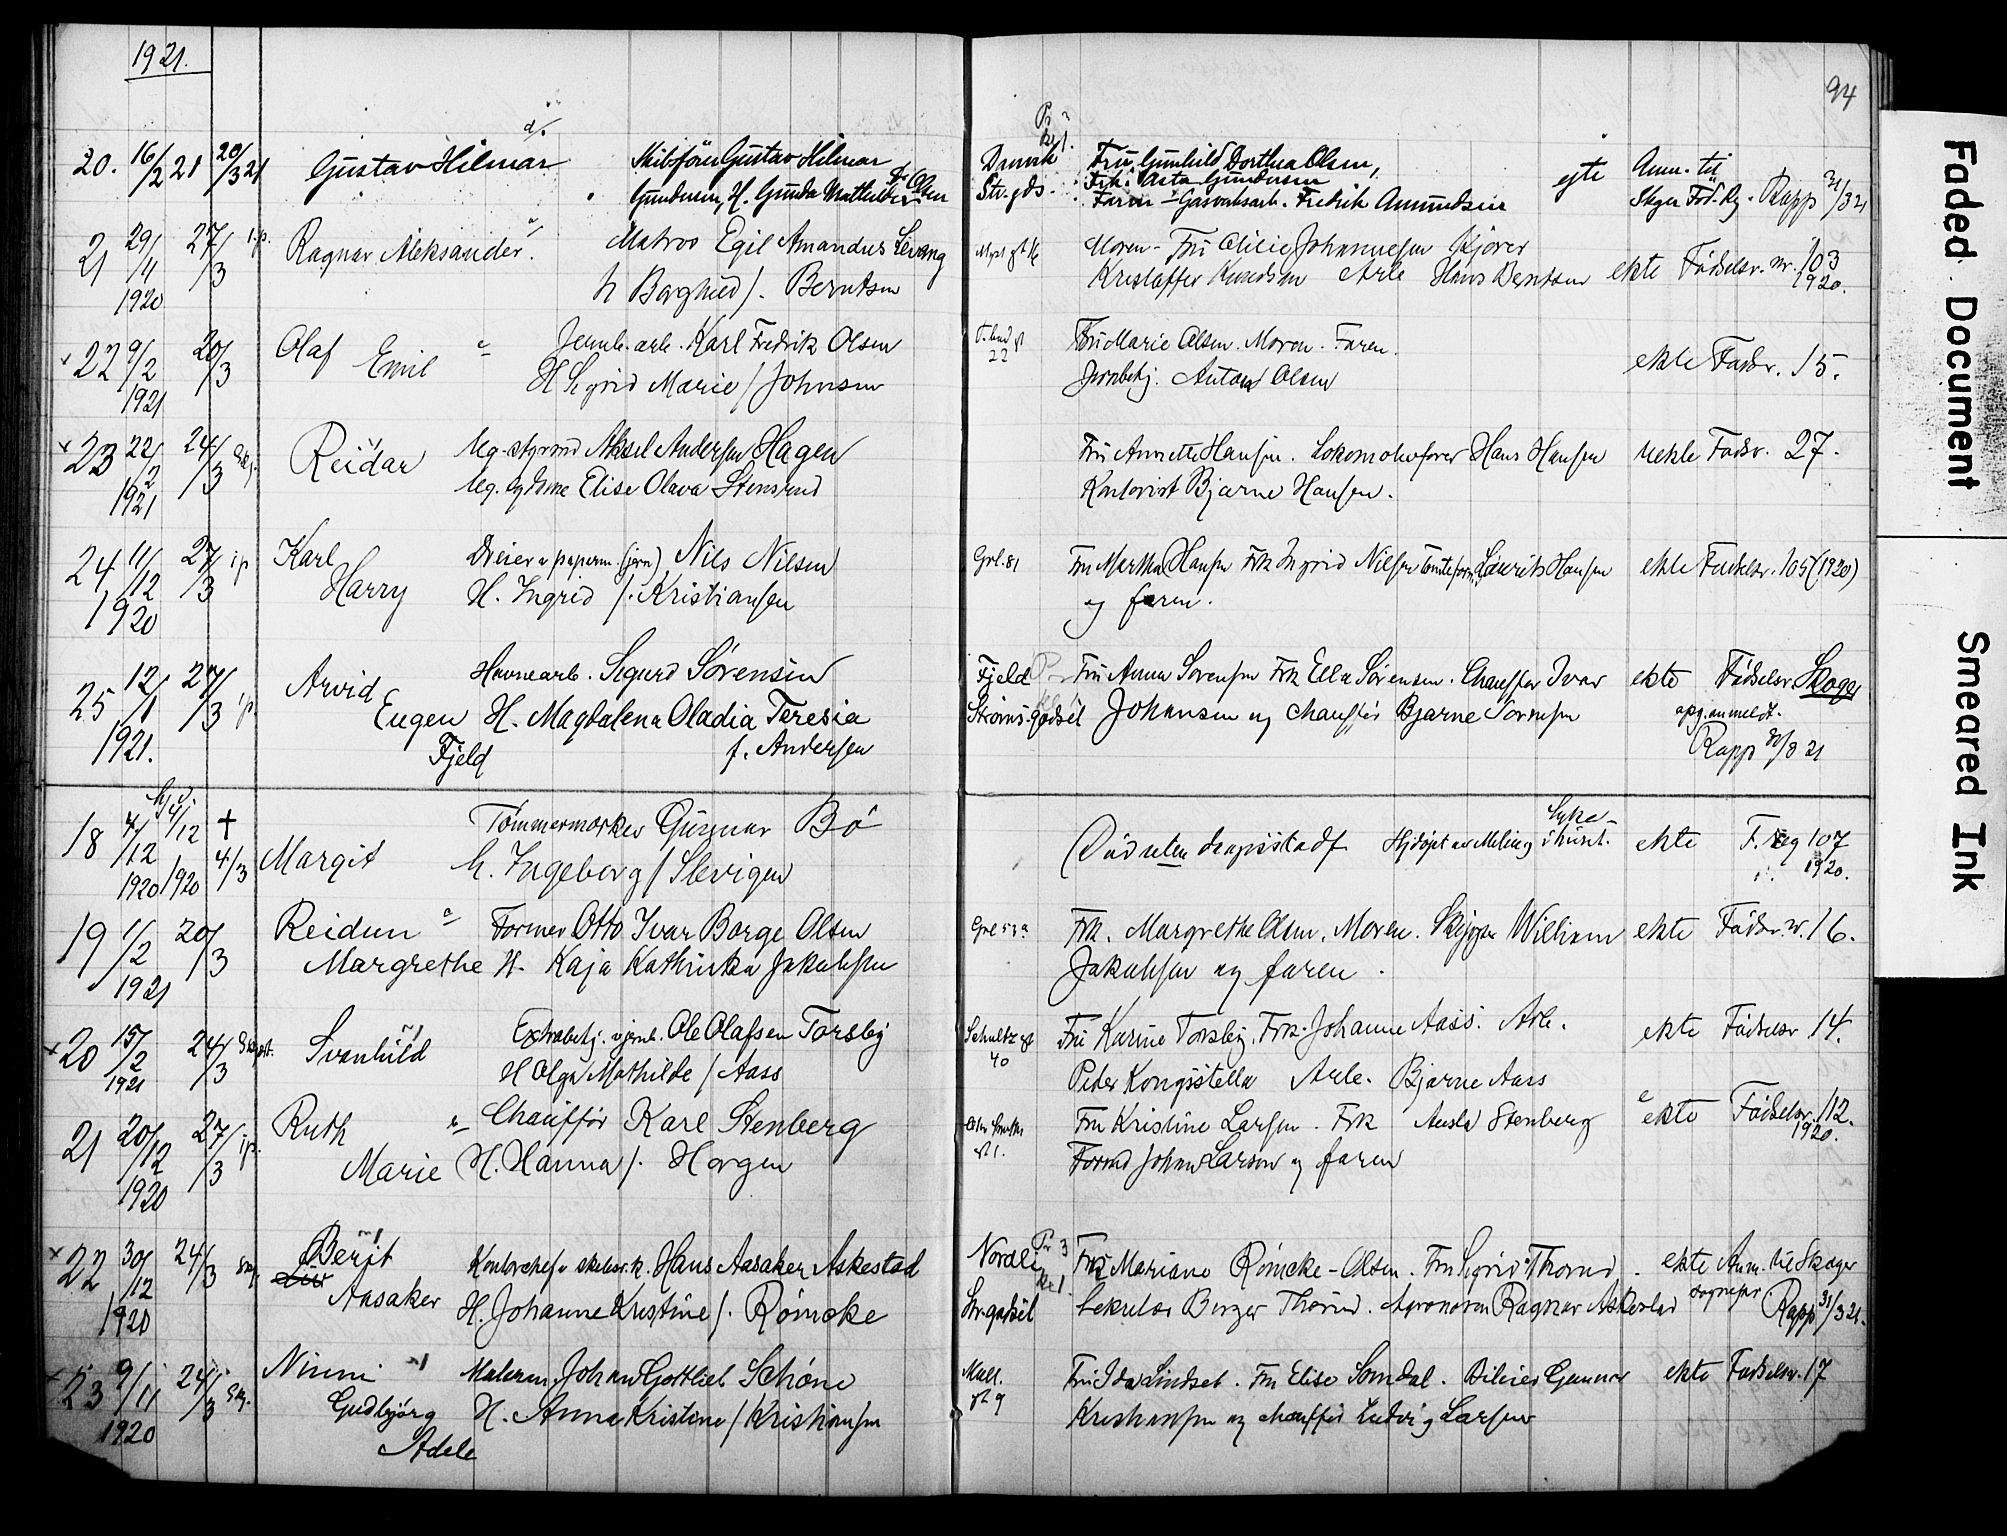 1921.
94
20. 16/2 21 20/3 21 Gustav Hilmar Skibsförer Gustav Hilmar
Gundersen, H. Gunda Mathilde f. Olsen
Str. gds. Fru Gunhild Dorthea Olsen,
Frk. Asta Gundersen
Faren - Gasverksarb. Fredrik Amundsen
ekte Anm. til
Skger Fød. Rg. Rapp 31/3 21
21 29/11 1920 27/3 i.p. Ragnar Aleksander Matros Egil Amandus Levang
h Borghild /. Berntsen
Moren - Fru Olilie Johannesen Kjører
Kristoffer Knudsen Arb. Hans Berntsen ekte Fødselsr. nr. 103
1920.
22 9/2 1921 20/3 Olaf Emil Jernb. arb. Karl Fredrik Olsen
H Sigrid Marie / Johnsen
22
Fru Marie Olsen. Moren. Faren.
Jernbebtj. Anton Olsen
ekte Fødsr. 15.
23 22/2 1921 24/3 Reidar Ug. styrmd Aksel Andersen Hagen
Ug. sydame Elise Olava Stensrud
Fru Annette Hansen. Lokomotivfører Hans Hansen uekte Fødsr. 27.
Kontorist Bjarne Hansen.
24 11/12 1920 27/3 i p Karl Harry Dreier v papirm. (jern) Nils Nilsen
H. Ingrid /. Kristiansen
Grl. 81
Fru Martha Hansen Frk Ingrid Nilsen Tomteform. Laurits Hansen ekte Fødselsr. 105 (1920)
og faren.
25 12/1 1921. 27/3 i p. Arvid Eugen Fjeld Havnearb. Sigurd Sørensen
H. Magdalena Oladia Teresia
f. Andersen
Fjeld
Strøms-godset
Fru Anna Sørensen Frk Ella Sørensen. Chauffør Ivar ekte Fødselsr Skoger
Johansen og chauffør Bjarne Sørensen opg. anmeldt.
Rapp 31/3 21
18 4/12 1920 hj.d. 4/12 1920 + 4/3 Margit Tømmermerker Gunnar Bö
h. Ingeborg / Slevigen
(Død uten daapsstadf. Hjdøpt av Meling i Syke-
huset.
ekte F. reg 107
1920.
19 1/2 1921 20/3 Reidun Margrethe Former Otto Ivar Borge Olsen
H. Kaja Kathinka Jakobsen
Grl 53a
Frk. Margrethe Olsen. Moren. Skipper William ekte Fødsr. nr. 16.
Jakobsen og faren.
20 15/2 1921 24/3 Svanhild Extrabetj. v jernb. Ole Olafsen Torsby
H Olga Mathilde / Aass
Schultz gt
40
Fru Karine Torsby. Frk. Johanne Aass. Arb. ekte Fødselsr 14.
Peder Kongsstelle Arb. Bjarne Aass
21 20/12 1920 27/3 i p. Ruth Marie Chauffør Karl Stenberg
H. Hanna /. Horgen
gt 1.
Fru Kristine Larsen. Frk Stenberg ekte Fødselsr. 112.
1920.
Formd Johan Larsen og faren
22 30/12 1920 24/3 Berit Aasaker Kontorchef v skibsr. k. Hans Aasaker Askestad
H. Johanne Kristine /. Römcke
Nordli
Str. godset
Frk Mariane Römcke-Olsen. Fru Sigrid Thorud. ekte Anm. til Skoger
sognepr.
Sekretær Birger Thorud. Agronomen Ragnar Askestad Rapp 31/3 21.
23 9/11 1920 24/3 Ninni Gudbjörg Adele Malerm. Johan Gottlieb Schöne
H. Anna Kristine / Kristiansen
Møll.
gt 9
Fru Ida Lindset. Fru Elise Somdal. Bileier Gunnar ekte Fødselsr. 17
Kristiansen og chauffør Ludvig Larsen
Faded Document
Smeared Ink